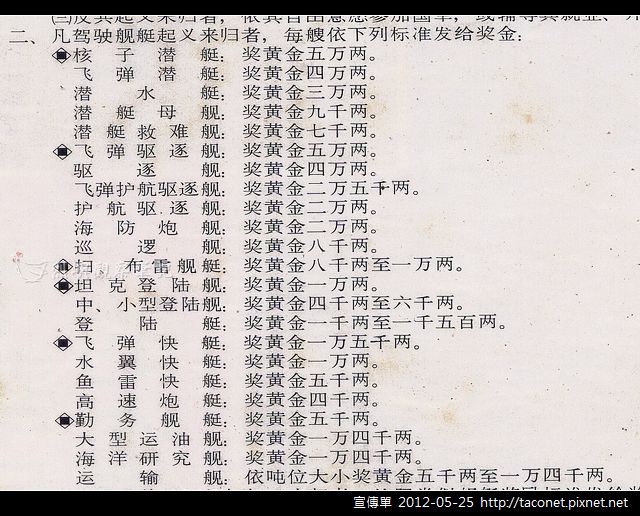 ㈢反共起义来归者，依其自由意愿参加国军，或辅导其就业、
二、凡驾驶舰艇起义来归者，每艘依下列标准发给奖金：
核子潜艇：奖黄金五万两。
飞弹潜艇：奖黄金四万两。
潜水艇：奖黄金三万两。
潜艇母舰：奖黄金九千两。
潜艇救难舰：奖黄金七千两。
飞弹驱逐舰：奖黄金五万两。
驱逐舰：奖黄金四万两。
飞弹护航驱逐舰：奖黄金二万五千两。
护航驱逐舰：奖黄金二万两。
海防炮舰：奖黄金二万两。
巡逻舰：奖黄金八千两。
扫布雷舰艇：奖黄金八千两至一万两。
坦克登陆舰：奖黄金一万两。
中、小型登陆舰：奖黄金四千两至六千两。
登陆艇：奖黄金一千两至一千五百两。
飞弹快艇：奖黄金一万五千两。
水翼快艇：奖黄金一万两。
鱼雷快艇：奖黄金五千两。
高速炮艇：奖黄金四千两。
勤务舰艇：奖黄金五千两。
大型运油舰：奖黄金一万四千两。
海洋研究舰：奖黄金一万四千两。
运输舰：依吨位大小奖黄金五千两至一万四千两。
宣傳單 2012-05-25 http://taconet.pixnet.net